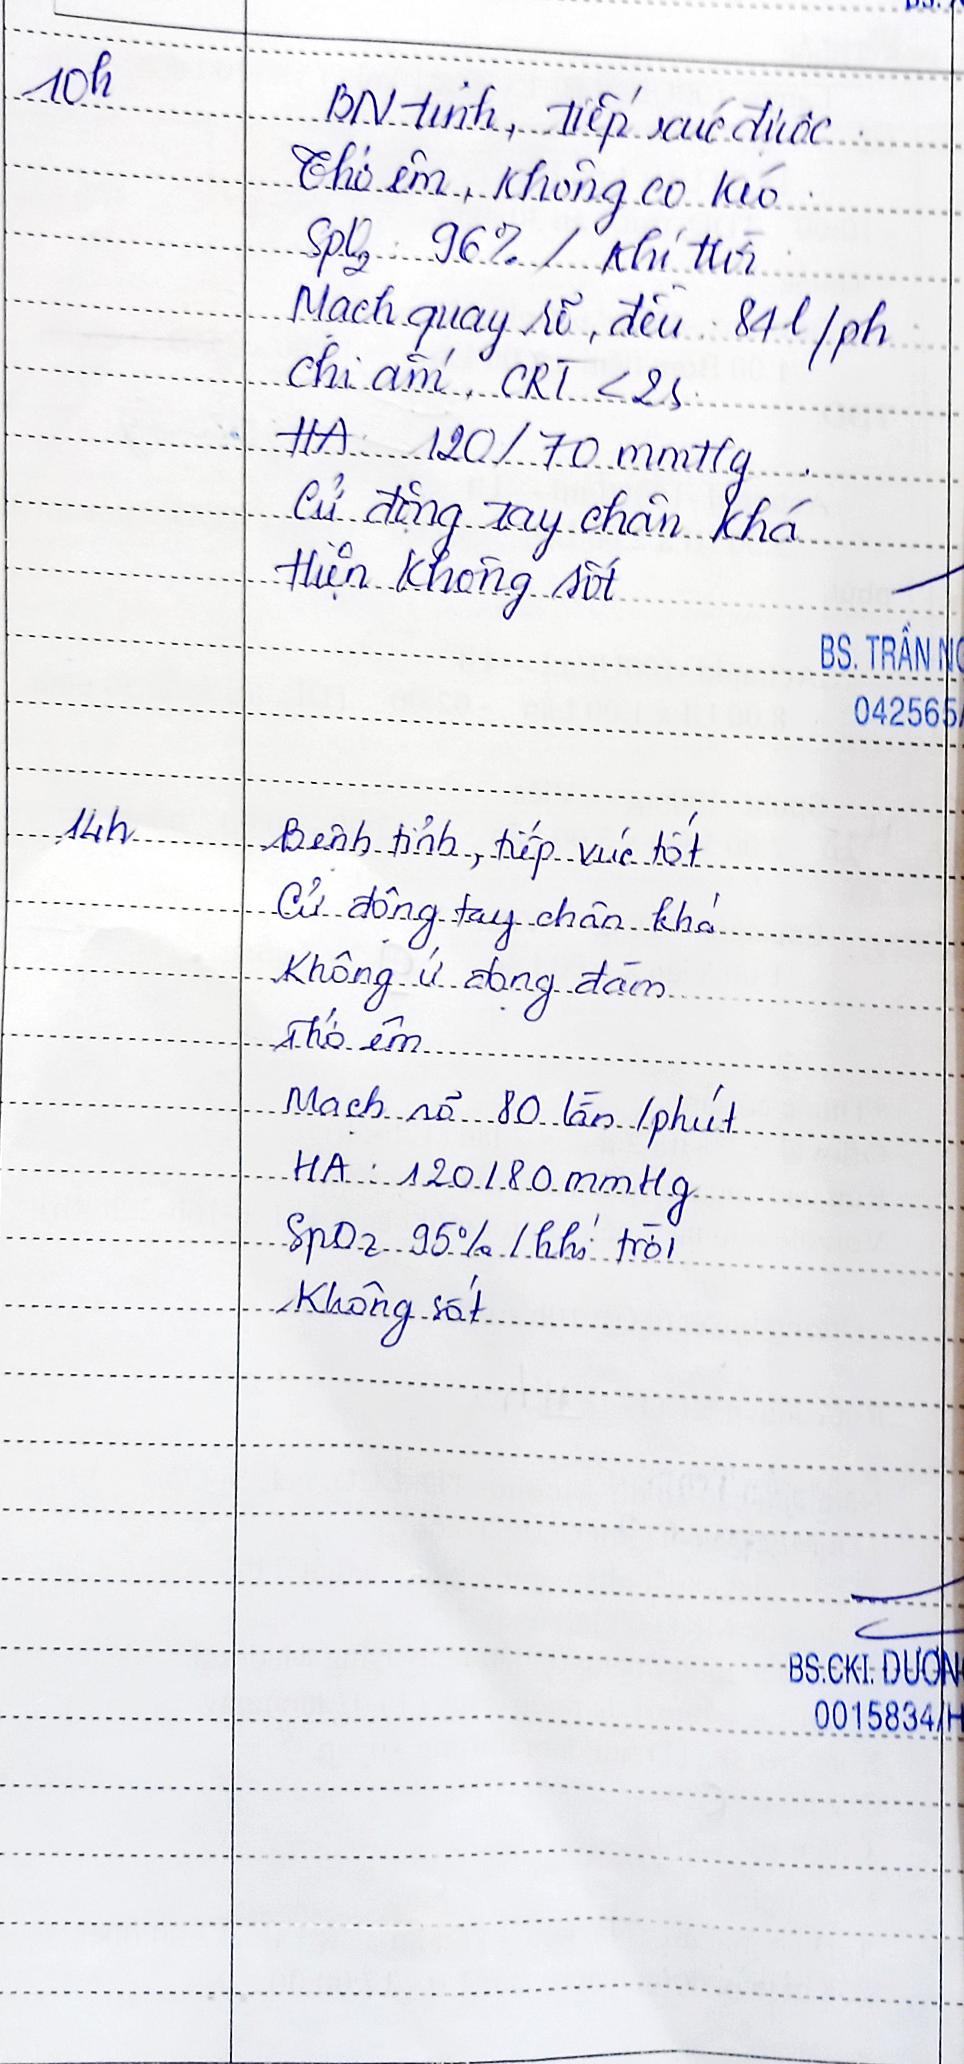 10h
BN tỉnh, tiếp xúc được.
Thở êm, không co kéo.
SpO2: 96% / khí trời
Mạch quay rõ, đều: 84l/ph
Chi ấm, CRT <2s.
HA: 120/70 mmHg.
Cử động tay chân khá
Hiện không sốt
BS. TRẦN
042565/
14h
Bệnh tỉnh, tiếp xúc tốt
Cử động tay chân khá
Không ứ đọng đàm
Thở êm
Mạch rõ 80 lần/phút
HA: 120/80 mmHg
SpO2 95% / khí trời
Không sốt
BS.CKI.
0015834/H